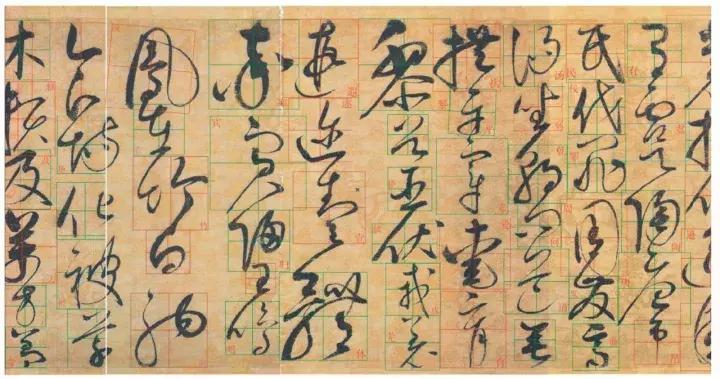 裳推位遜國
有虞陶唐弔
民伐罪周發商
湯坐朝問道垂
拱平章愛育
黎首臣伏戎羌
遐邇壹體
率賓歸王鳴
鳳在竹白駒
食場化被草
木賴及萬方蓋